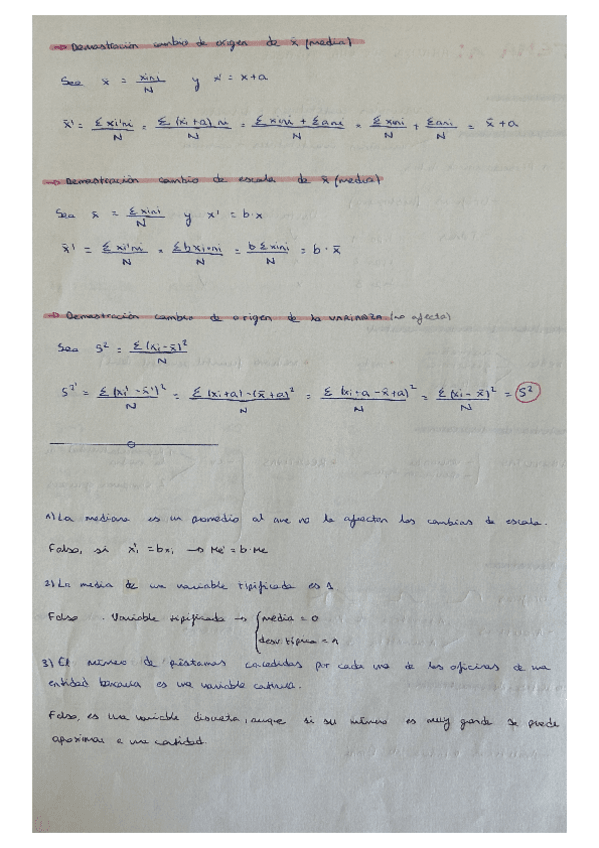 → Demostración cambio de origen de x̄ (media)
Sea x̄ = xini/N y x' = x+a
x̄' = Σxi'ni/N = Σ(xi+a)ni/N = Σxini + Σani/N = Σxini/N + Σani/N = x̄ + a
→ Demostración cambio de escala de x̄ (media)
Sea x̄ = Σxini/N y x' = b·x
x̄' = Σxi'ni/N = Σbxi·ni/N = bΣxini/N = b·x̄
→ Demostración cambio de origen de la VARIANZA (no afecta)
Sea S² = Σ(xi-x̄)²/N
S²' = Σ(xi'-x̄')²/N = Σ(xi+a)-(x̄+a)²/N = Σ(xi+a-x̄+a)²/N = Σ(xi-x̄)²/N = S²
1) La mediana es un promedio al que no le afectan los cambios de escala.
Falso, si xi' = bxi → Me' = b·Me
2) La media de una variable tipificada es 1
Falso. Variable tipificada → { media = 0
desv. típica = 1
3) El número de préstamos concedidos por cada una de las oficinas de una
entidad bancaria es una variable continua.
Falso, es una variable discreta, aunque si su número es muy grande se puede
aproximar a una cantidad.